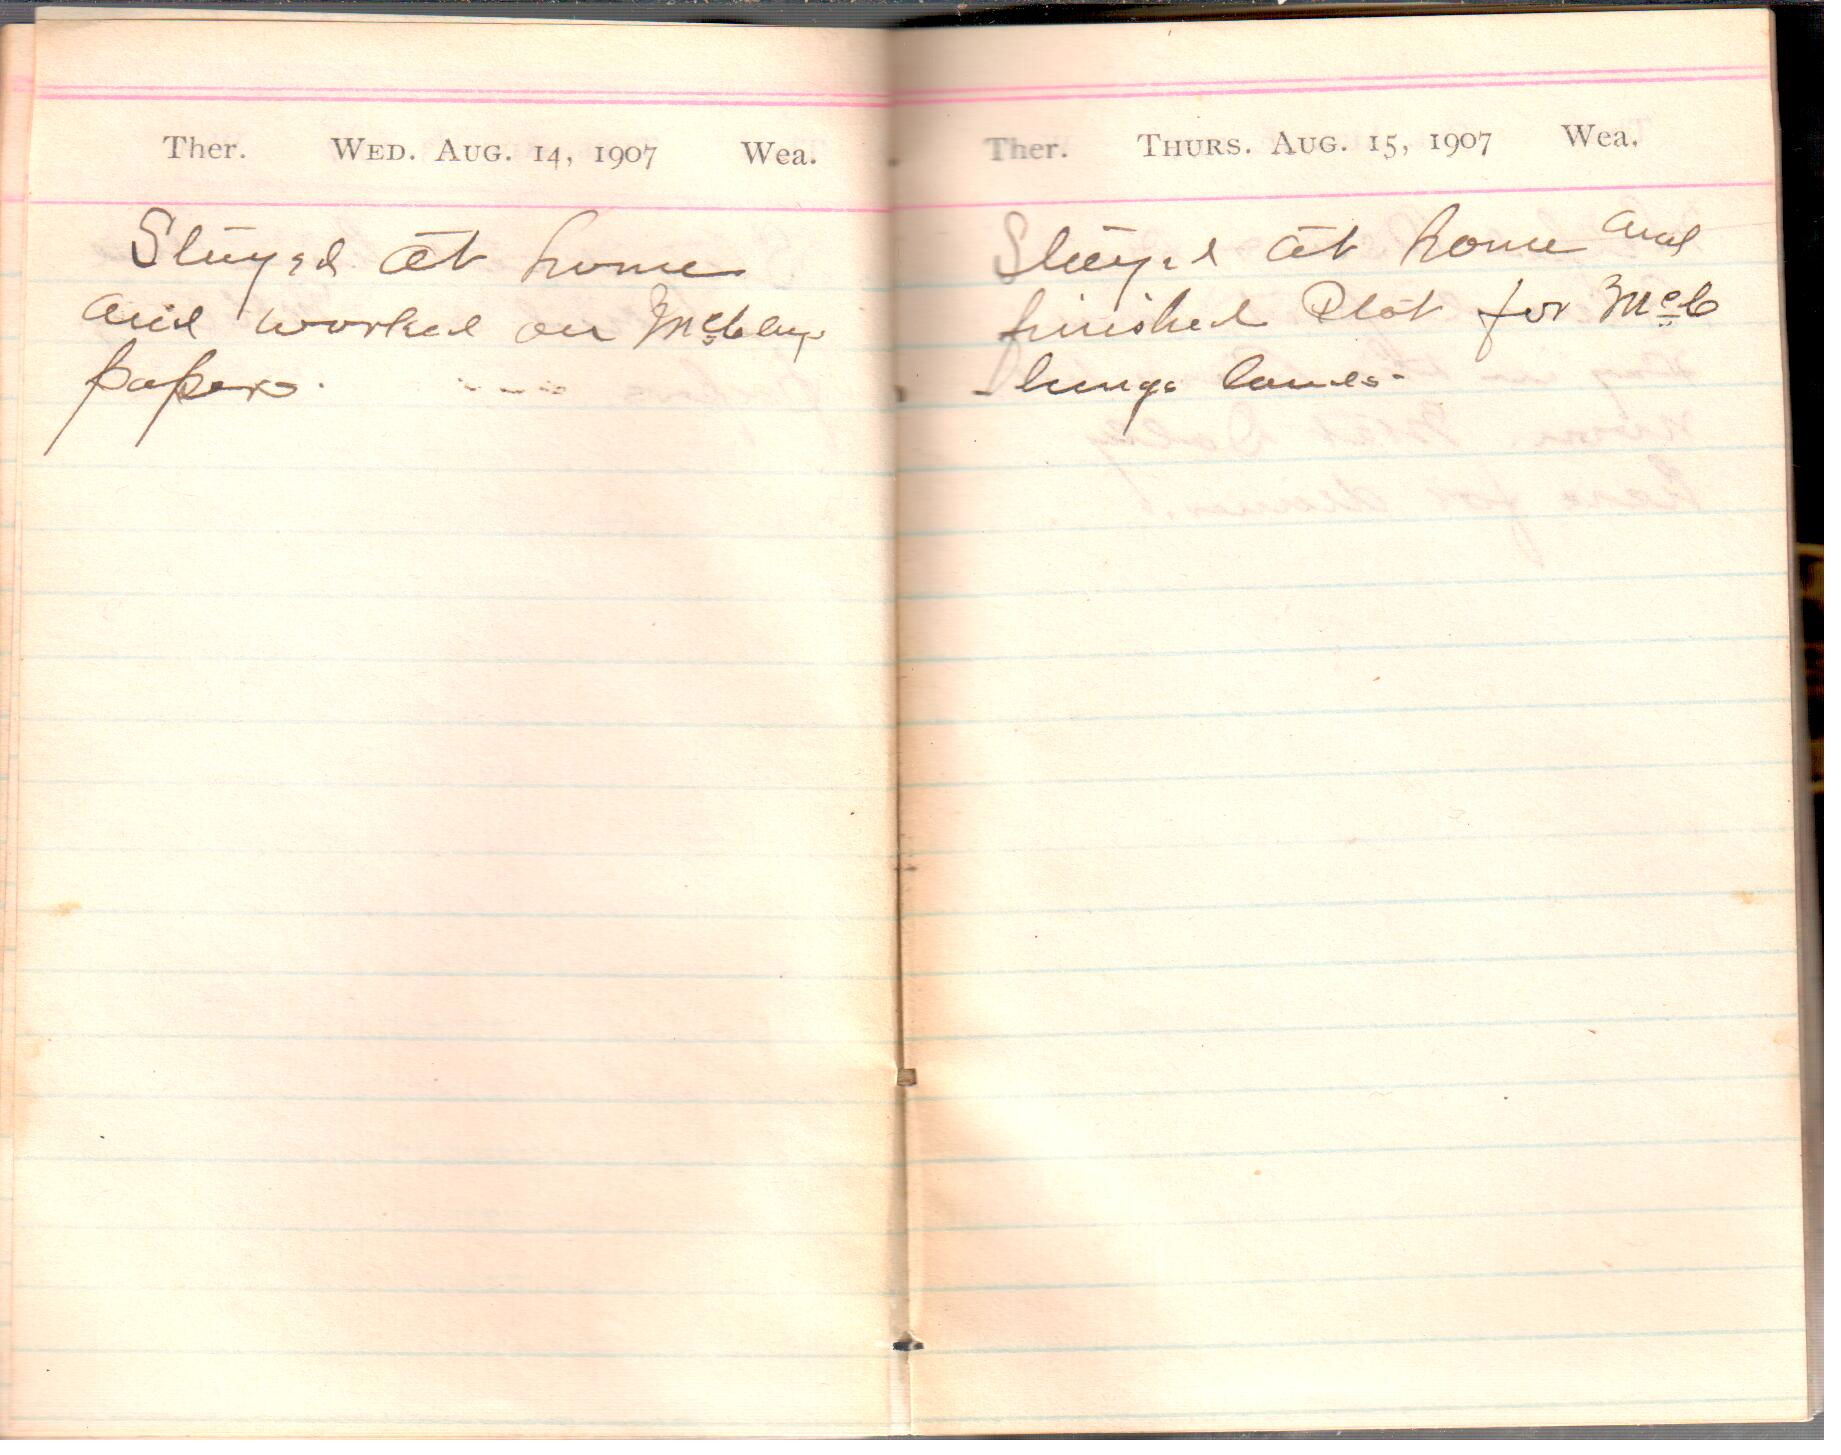 Ther. WED. AUG. 14, 1907 Wea.
Stayed at home
and worked on McClungs
papers.
Ther. THURS. AUG. 15, 1907 Wea.
Stayed at home and
finished Plat for McC
lungs lands-